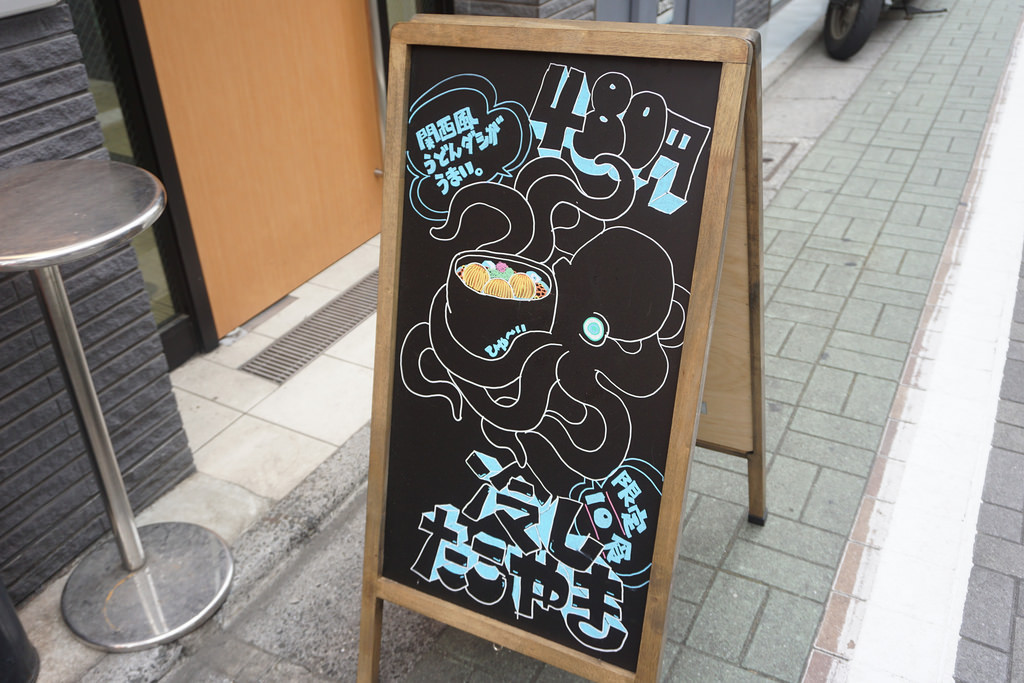 関西風
うどんダシが
うまい。
480円
ひゃ〜!!
限定
10食
冷し
たこやき